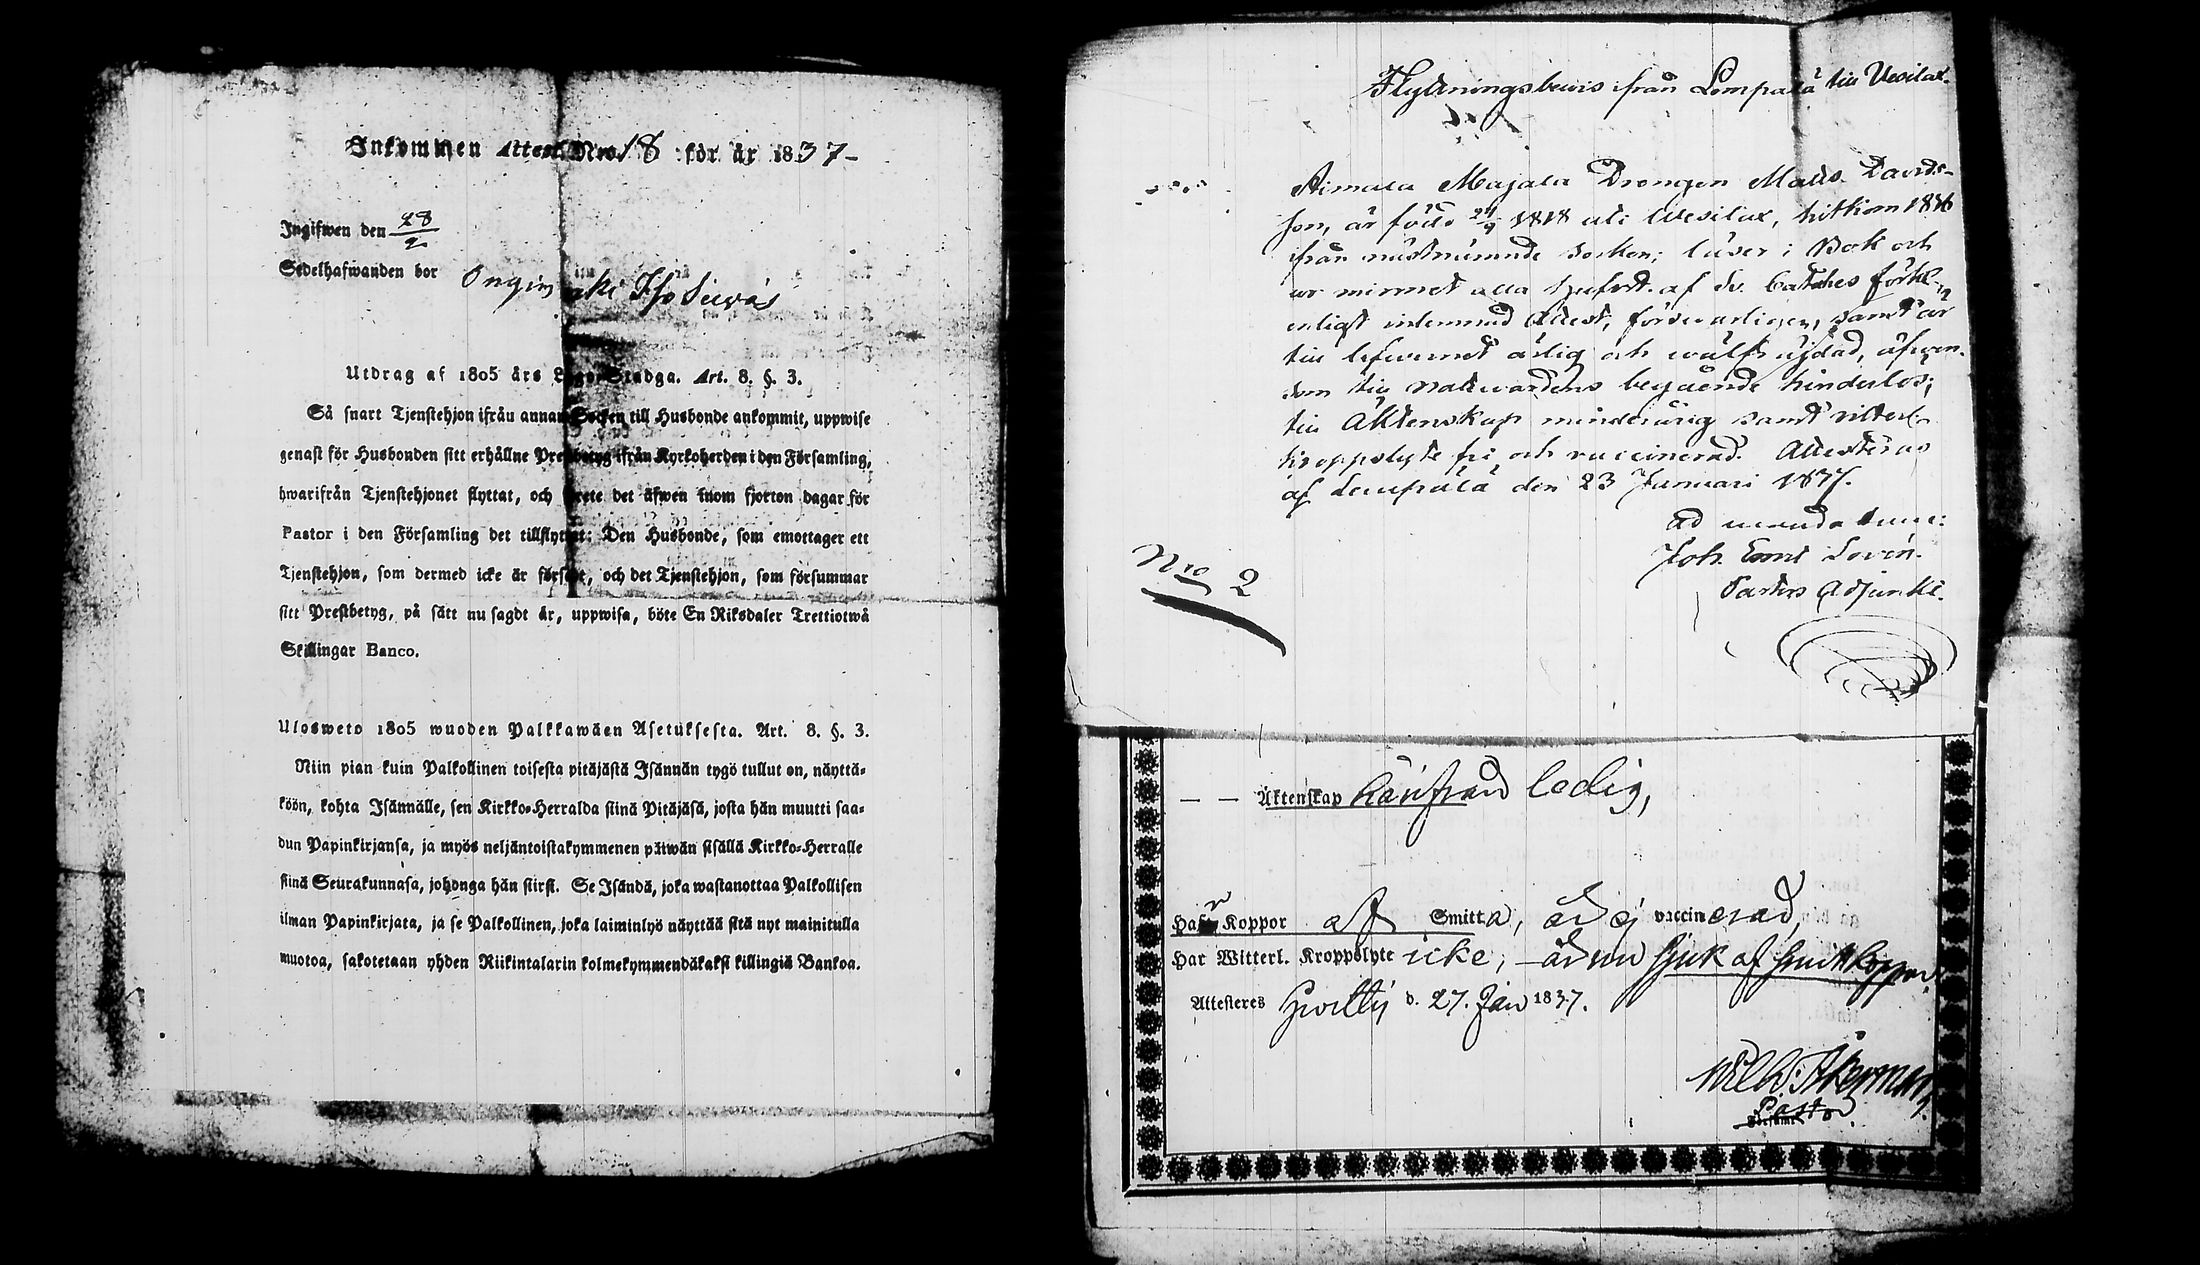 Inkommen Attest Nro 18 för år 1837-
Ingifwen den 28/2
Sedelhafwanden bor
Utdrag af 1805 års Lego-Stadga. Art. 8. §. 3.
Så snart Tjenstehjon ifrån annan Socken till Husbonde ankommit, uppwise
genast för Husbonden sitt erhållne Prestbetyg ifrån Kyrkoherden i den Församling,
hwarifrån Tjenstehjonet flyttat, och tete det äfwen inom fjorton dagar för
Pastor i den Församling det tillflyttat: Den Husbonde, som emottager ett
Tjenstehjon, som dermed icke är försedt, och det Tjenstehjon, som försummar
sitt Prestbetyg, på sätt nu sagdt är, uppwisa, böte En Riksdaler Trettiotwå
Skillingar Banco.
Ulosweto 1805 wuoden Palkkawäen Asetuksesta. Art. 8. §. 3.
Niin pian kuin Palkollinen toisesta pitäjästä Isännän tygö tullut on, näyttä-
köön, kohta Isännälle, sen Kirkko-Herralda siinä Pitäjäsä, josta hän muutti saa-
dun Papinkirjansa, ja myös neljäntoistakymmenen päiwän sisällä Kirkko-Herralle
siinä Seurakunnasa, johonga hän siirsi. Se Isändä, joka wastanottaa Palkollisen
ilman Papinkirjata, ja se Palkollinen, joka laiminlyö näyttää sitä nyt mainitulla
muotoa, sakotetaan yhden Riikintalarin kolmekymmendäkaksi killingiä Bankoa.
Flyttningsbewis ifrån Lempälä till Vesilax.
Aimala Majala Drengen Matts Davids-
son, är född 24/9 1818 uti Wesilax, hitkom 1836
ifrån nästnämnde Socken; läser i Bok och
ur minnet alla Hufvdst. af Dr. Cateches förkl.
enligt inlemnad Attest, förswarligen, samt är
till lefwernet ärlig och wälfrägdad, äfwen-
som till Nattwardens begående hinderlös;
till Äktenskap minderårig samt witterl.
kroppslyte fri och vaccinerad. Attesteras
af Lempälä den 23 Januari 1837.
ad mandatum:
Joh. Emt Lovén.
Pastors Adjunkt.
Nro 2
— — Äktenskap härifrån ledig,
Haft Koppor af Smitta, är ej vaccinerad,
Har Witterl. Kroppslyte icke, är nu sjuk af smittkoppor.
Attesteres d. 27. Jan 1837.
Wilh. Åkerman
Pastor.